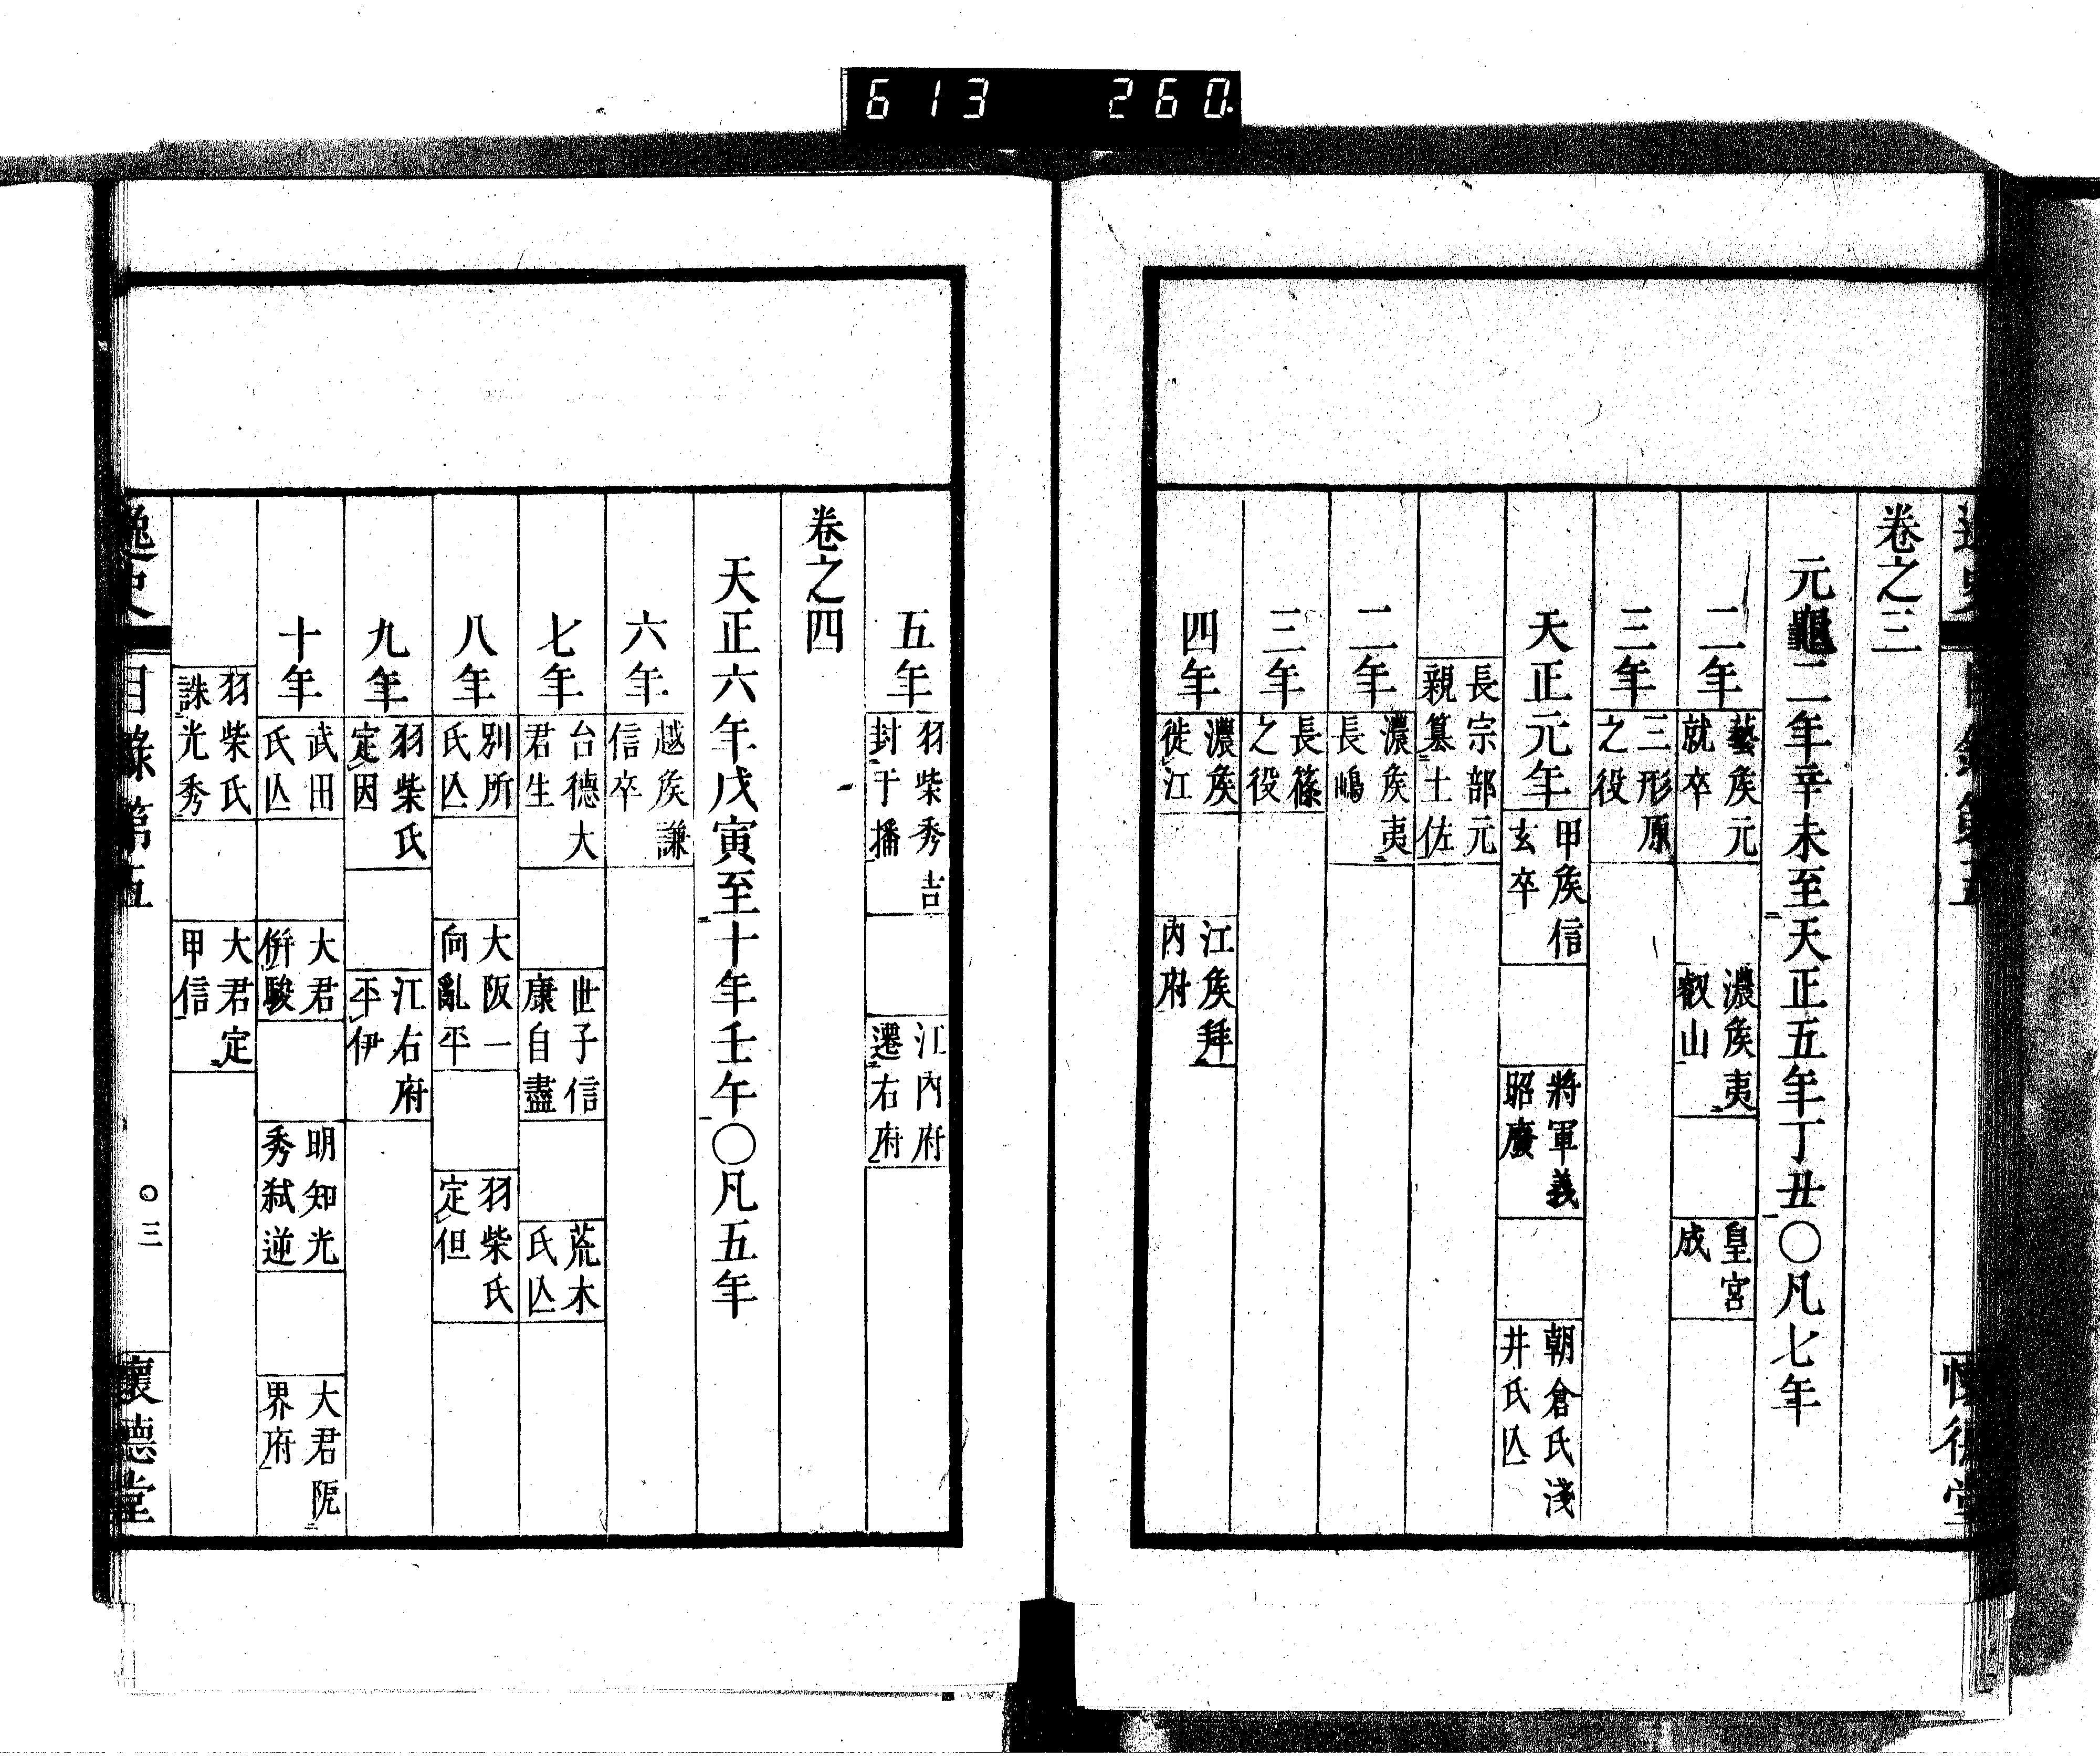 613 260
逸史 目錄第五 懷德堂
卷之三
元龜二年辛未至天正五年丁丑○凡七年
二年 藝矦元就卒 濃矦夷叡山 皇宮成
三年 三形原之役
天正元年 甲矦信玄卒 將軍義昭廢 朝倉氏淺井氏亾
長宗部元親纂土佐
二年 濃矦夷長嶋
三年 長篠之役
四年 濃矦徙江 江矦拜內府
五年 羽柴秀吉封于播 江內府遷右府
卷之四
天正六年戊寅至十年壬午○凡五年
六年 越矦謙信卒
七年 台德大君生 世子信康自盡 荒木氏亾
八年 別所氏亾 大阪一向亂平 羽柴氏定但
九年 羽柴氏定因 江右府平伊
十年 武田氏亾 大君併駿 明知光秀弑逆 大君阨界府
羽柴氏誅光秀 大君定甲信
逸史 目錄第五 ○三 懷德堂